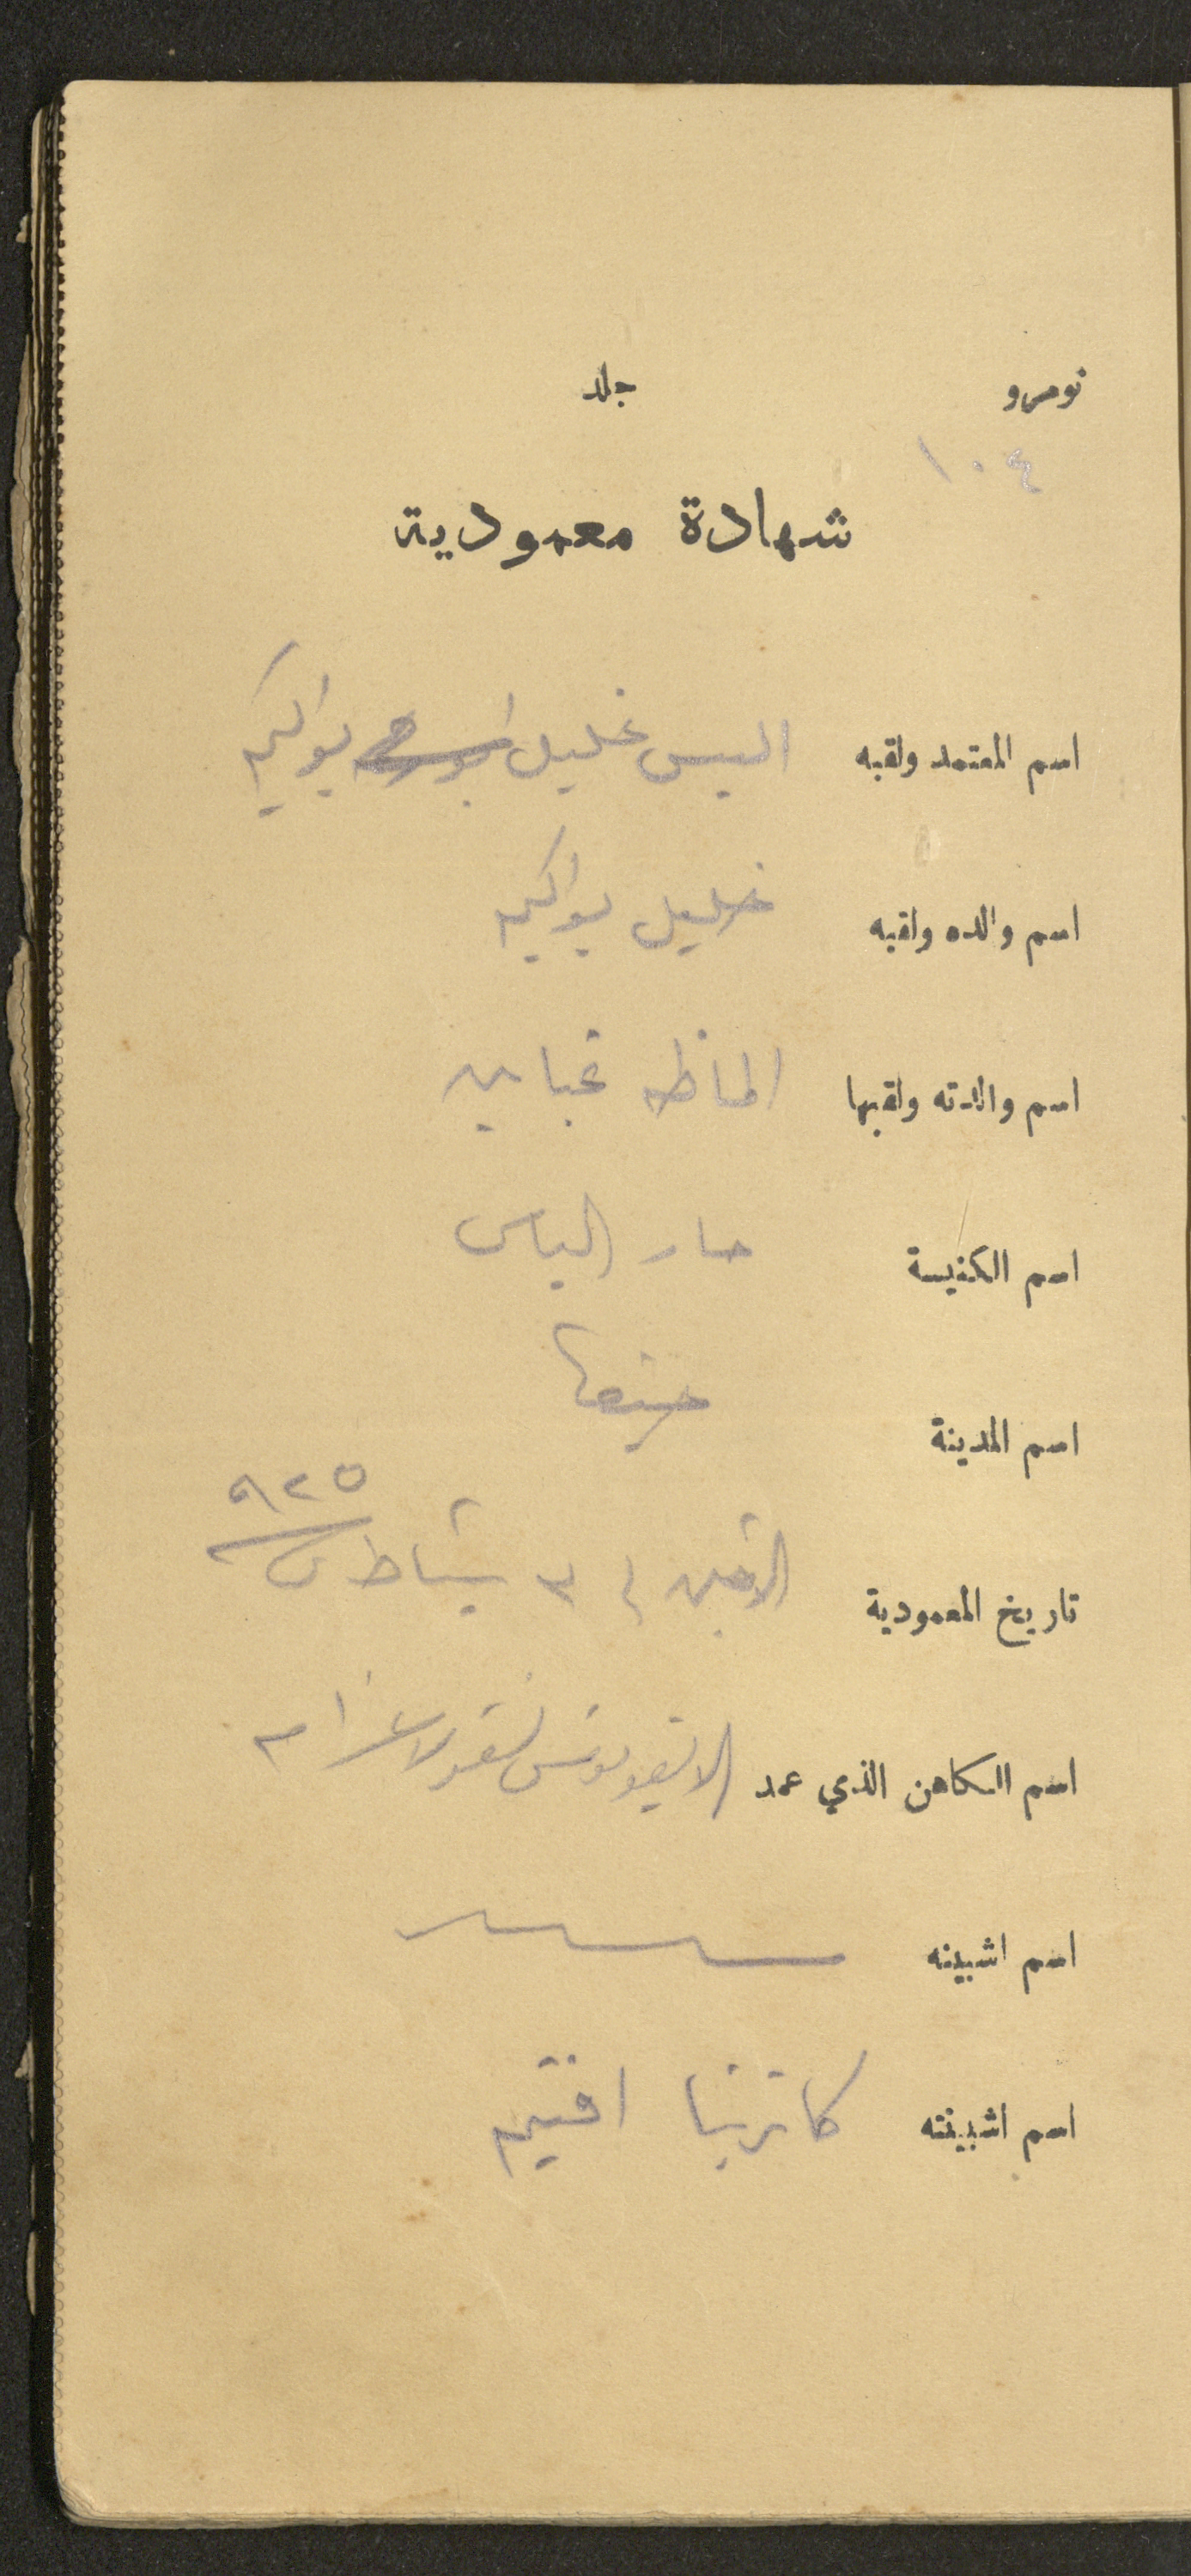 نومرو جلد
١٠٤
شهادة معمودية
اسم المعتمد ولقبه اليس خليل يواكيم
اسم والده ولقبه خليل يواكيم
اسم والدته ولقبها الماظه
اسم الكنيسة مار الياس
اسم المدينة حيفا
تاريخ المعمودية الاثنين في ٣ شباط س ٩٢٥
اسم الكاهن الذي عمد نقولا عزام
اسم اشبينه
اسم اشبينته كاترينا افتيم